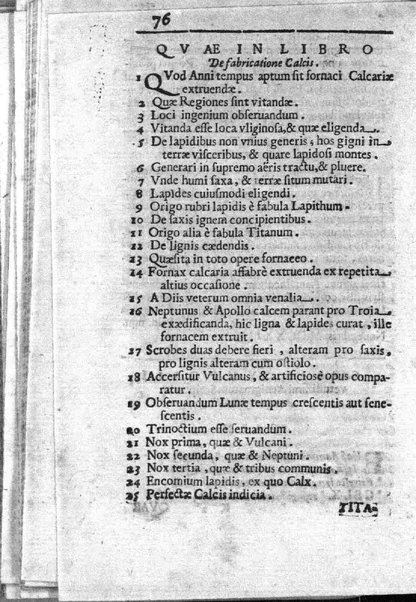 76
QVAE IN LIBRO
De fabricatione Calcis.
1 QVod Anni tempus aptum sit fornaci Calcariæ
extruendæ.
2 Quæ Regiones sint vitandæ.
3 Loci ingenium obseruandum.
4 Vitanda esse loca vliginosa, & quæ eligenda.
5 De lapidibus non vnius generis, hos gigni in
terræ visceribus, & quare lapidosi montes.
6 Generari in supremo aëris tractu, & pluere.
7 Vnde humi saxa, & terræ situm mutari.
8 Lapides cuiusmodi eligendi.
9 Origo rubri lapidis è fabula Lapithum.
10 De saxis ignem concipientibus.
11 Origo alia è fabula Titanum.
12 De lignis cædendis.
13 Quæsita in toto opere fornaceo.
14 Fornax calcaria affabrè extruenda ex repetita
altius occasione.
15 A Diis veterum omnia venalia.
16 Neptunus & Apollo calcem parant pro Troia
exædificanda, hic ligna & lapides curat, ille
fornacem extruit.
17 Scrobes duas debere fieri, alteram pro saxis,
pro lignis alteram cum ostiolo.
18 Accersitur Vulcanus, & artificiosè opus compa-
ratur.
19 Obseruandum Lunæ tempus crescentis aut sene-
scentis.
20 Trinoctium esse seruandum.
21 Nox prima, quæ & Vulcani.
22 Nox secunda, quæ & Neptuni.
23 Nox tertia, quæ & tribus communis.
24 Encomium lapidis, ex quo Calx.
25 Perfectæ Calcis indicia.
TITA-